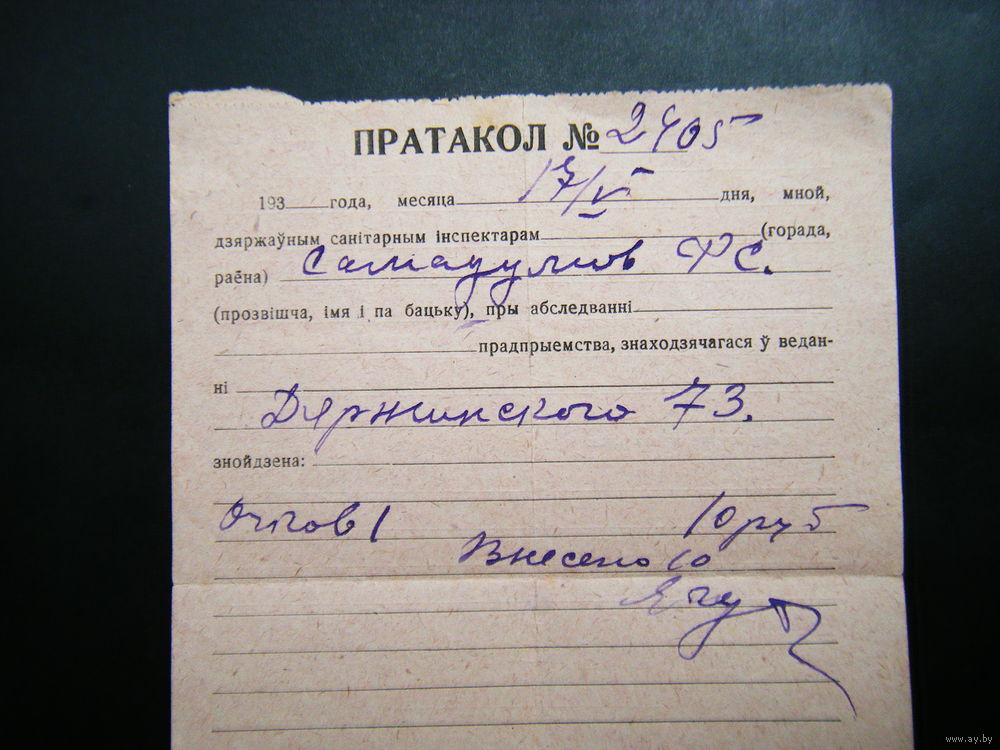 ПРАТАКОЛ № 2405
193 года, месяца 17/V дня, мной,
дзяржаўным санітарным інспектарам (горада,
раёна)
(прозвішча, імя і па бацьку), пры абследванні
прадпрыемства, знаходзячагася ў ведан-
ні
Дзержинского 73.
знойдзена:
10 руб
Внесено 10
www.ay.by